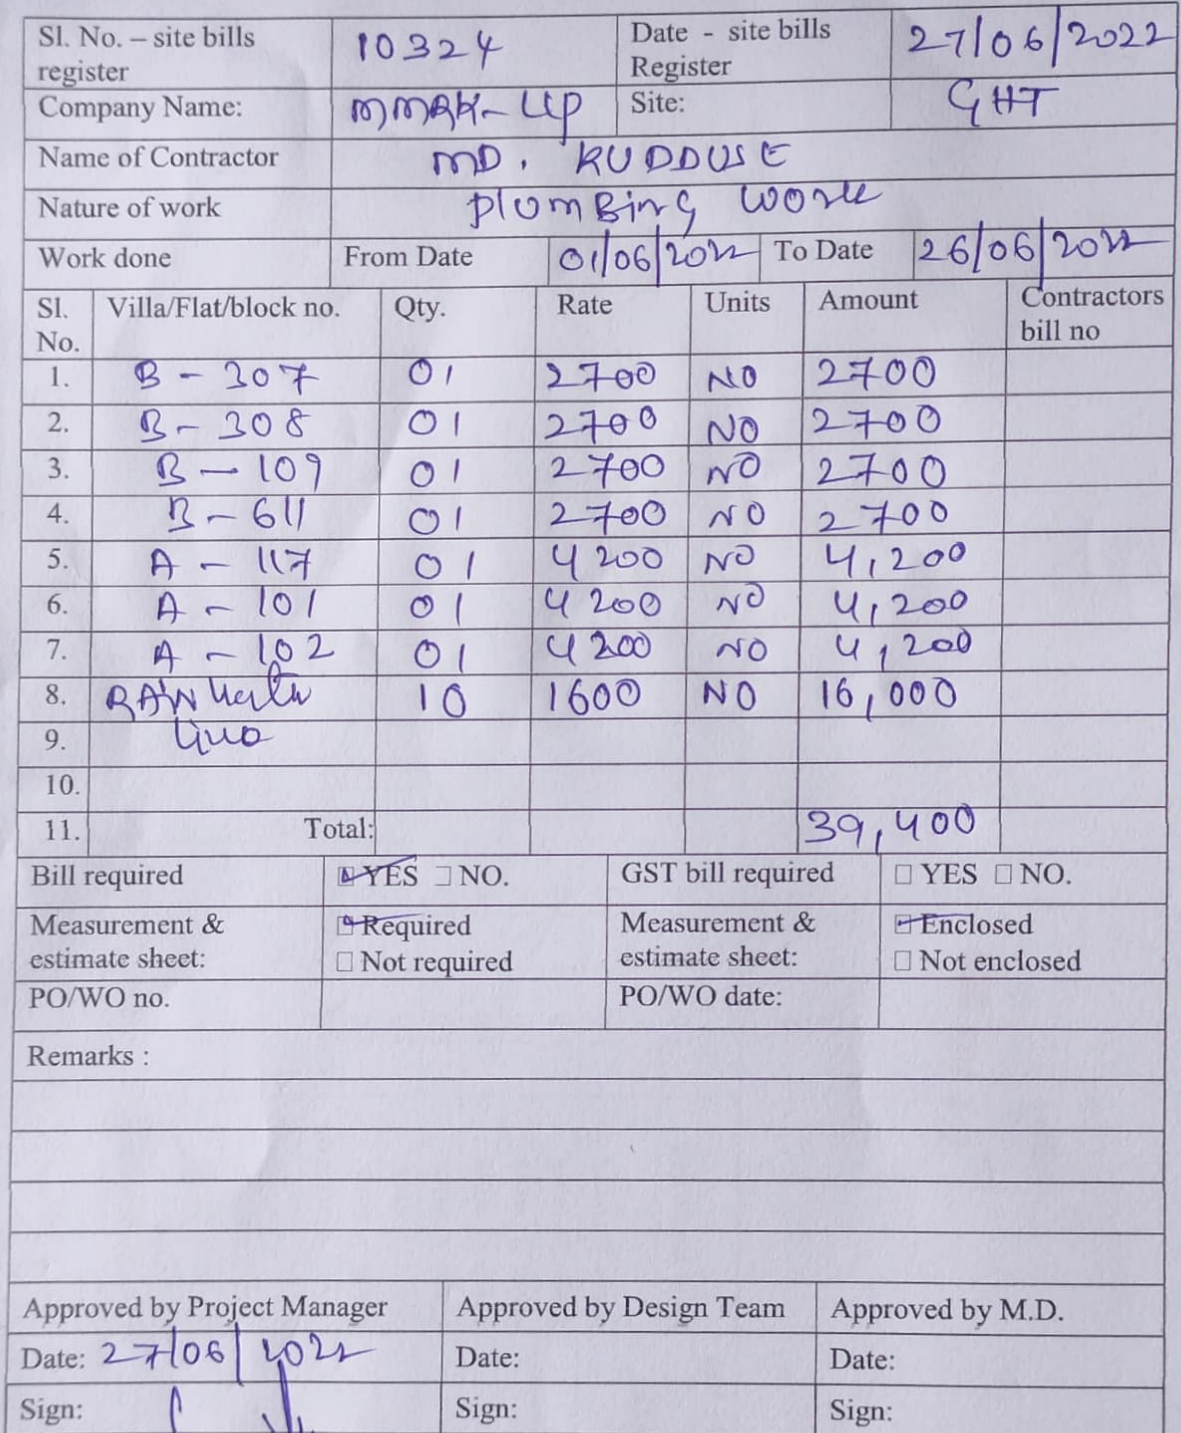 Sl. No. – site bills register 10324 Date - site bills Register 27/06/2022
Company Name: MMRK-LLP Site: GHT
Name of Contractor MD. KUDDUSE
Nature of work Plumbing work
Work done From Date 01/06/2022 To Date 26/06/2022
Sl. No. Villa/Flat/block no. Qty. Rate Units Amount Contractors bill no
1. B - 307 01 2700 NO 2700
2. B - 308 01 2700 NO 2700
3. B - 109 01 2700 NO 2700
4. B - 611 01 2700 NO 2700
5. A - 117 01 4200 NO 4,200
6. A - 101 01 4200 NO 4,200
7. A - 102 01 4200 NO 4,200
8. RAIN 10 1600 NO 16,000
9.
10.
11. Total: 39,400
Bill required YES NO. GST bill required YES NO.
Measurement & estimate sheet: Required Not required Measurement & estimate sheet: Enclosed Not enclosed
PO/WO no. PO/WO date:
Remarks :
Approved by Project Manager Approved by Design Team Approved by M.D.
Date: 27/06/2022 Date: Date:
Sign: Sign: Sign: